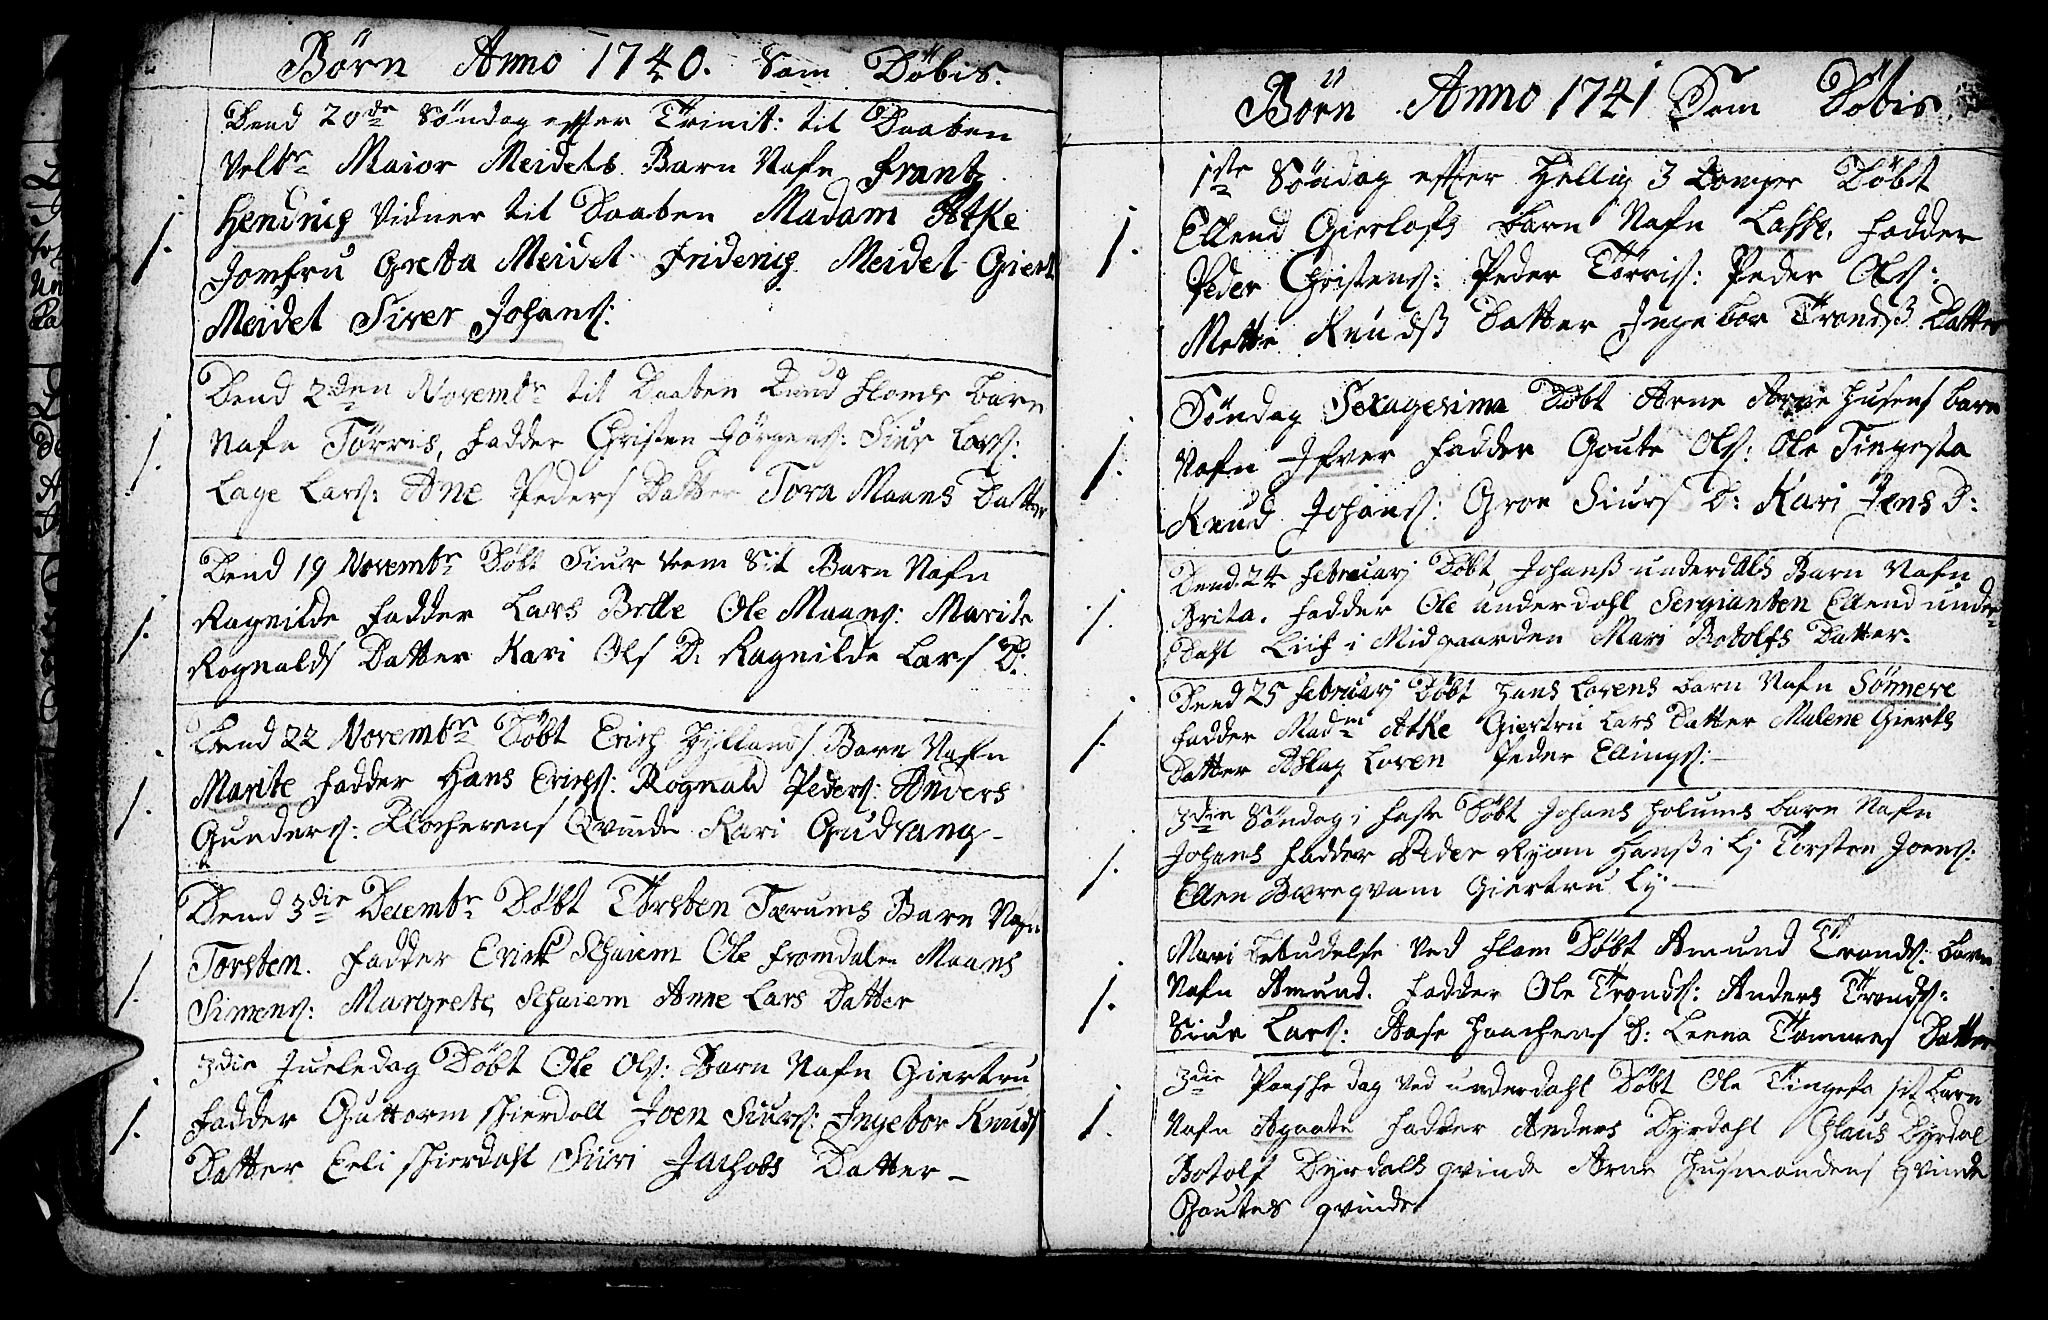 Børn Anno 1740. Som Døbis.
Dend 20de Søndag effter Trinit: til Daaben
Velbr Maior Meidels Barn Nafn Frantz
Hendrig Vidner til Daaben Madam Atke
Jomfru Gretta Meidel Friderig Meidel Giert
Meidel Siver Johans:
Dend 2den Novembr til Daaben Knud Floms Barn
Nafn Törris, Fadder Christen Jörgens: Siur Lars:
Lage Lars: Ane Peders Datter Tora Maans Datter
Dend 19 Novembr Døbt Siur Sit Barn Nafn
Ragnilde Fadder Lars Brecke Ole Maans: Marite
Rognalds Datter Kari Ols D. Ragnilde Lars D:
Dend 22 Novembr Døbt Erich Hyllands Barn Nafn
Marite Fadder Hans Erichs: Rognald Peders: Anders
Gunders: Klocherens Qvinde Kari Gudvang -
Dend 3die Decembr Døbt Torsten Tærums Barn Nafn
Torsten. Fadder Erick Schaiem Ole Fromdalen Maans
Simens: Margrete Schaiem Anne Lars Datter
3die Jueledag Døbt Ole Ols: Barn Nafn Giertru
Fadder Guttorm Skierdall Joen Siurs: Ingebor Knuds
Datter Eeli Skierdahl Siiri Jachobs Datter -
Børn Anno 1741 Som Døbis.
1ste Søndag effter Hellig 3 Konger Døbt
Ellend Gierlofs Barn Nafn Lasse. Fadder
Peder Christens: Peder Törris: Peder Ols:
Mette Knudsß Datter Ingebor Trondsß Datter
Søndag Sexagesima Døbt Arne Arne Husens Barn
Nafn Ifver Fadder Goute Ols: Ole Tingesta
Knud Johans: Groe Siurs D: Kari Jens D:
Dend 24 Februarj Døbt Johanß underdals Barn Nafn
Brita. Fadder Ole underdahl Sergianten Ellend under-
Dahl Liif i Midgaarden Mari Botolfs Datter.
Dend 25 Februarj Døbt Hans Lovens Barn Nafn Sönneve
Fadder Madm Atke Giertru Lars Datter Malene Gierts
Datter Aslag Loven Peder Ellings: -
3die Søndag i Faste Døbt Johans Holums Barn Nafn
Johans Fadder Peder Ryom Hanß i Ly Torsten Joens:
Ellen Bæreqvam Giertru Ly -
Mari Bebudelse Ved Flom Døbt Amund Tronds: Barn
Nafn Amund. Fadder Ole Tronds: Anders Tronds:
Siur Lars: Aase Haachens D: Leena Tommes Datter
3die Paaske dag Ved underdahl Døbt Ole Tingesta sit Barn
Nafn Agaate Fadder Anders Dyrdahl Glaus Dyrdal
Botolf Dyrdals qvinde Arne Husmandens qvinde
Goutes qvinde